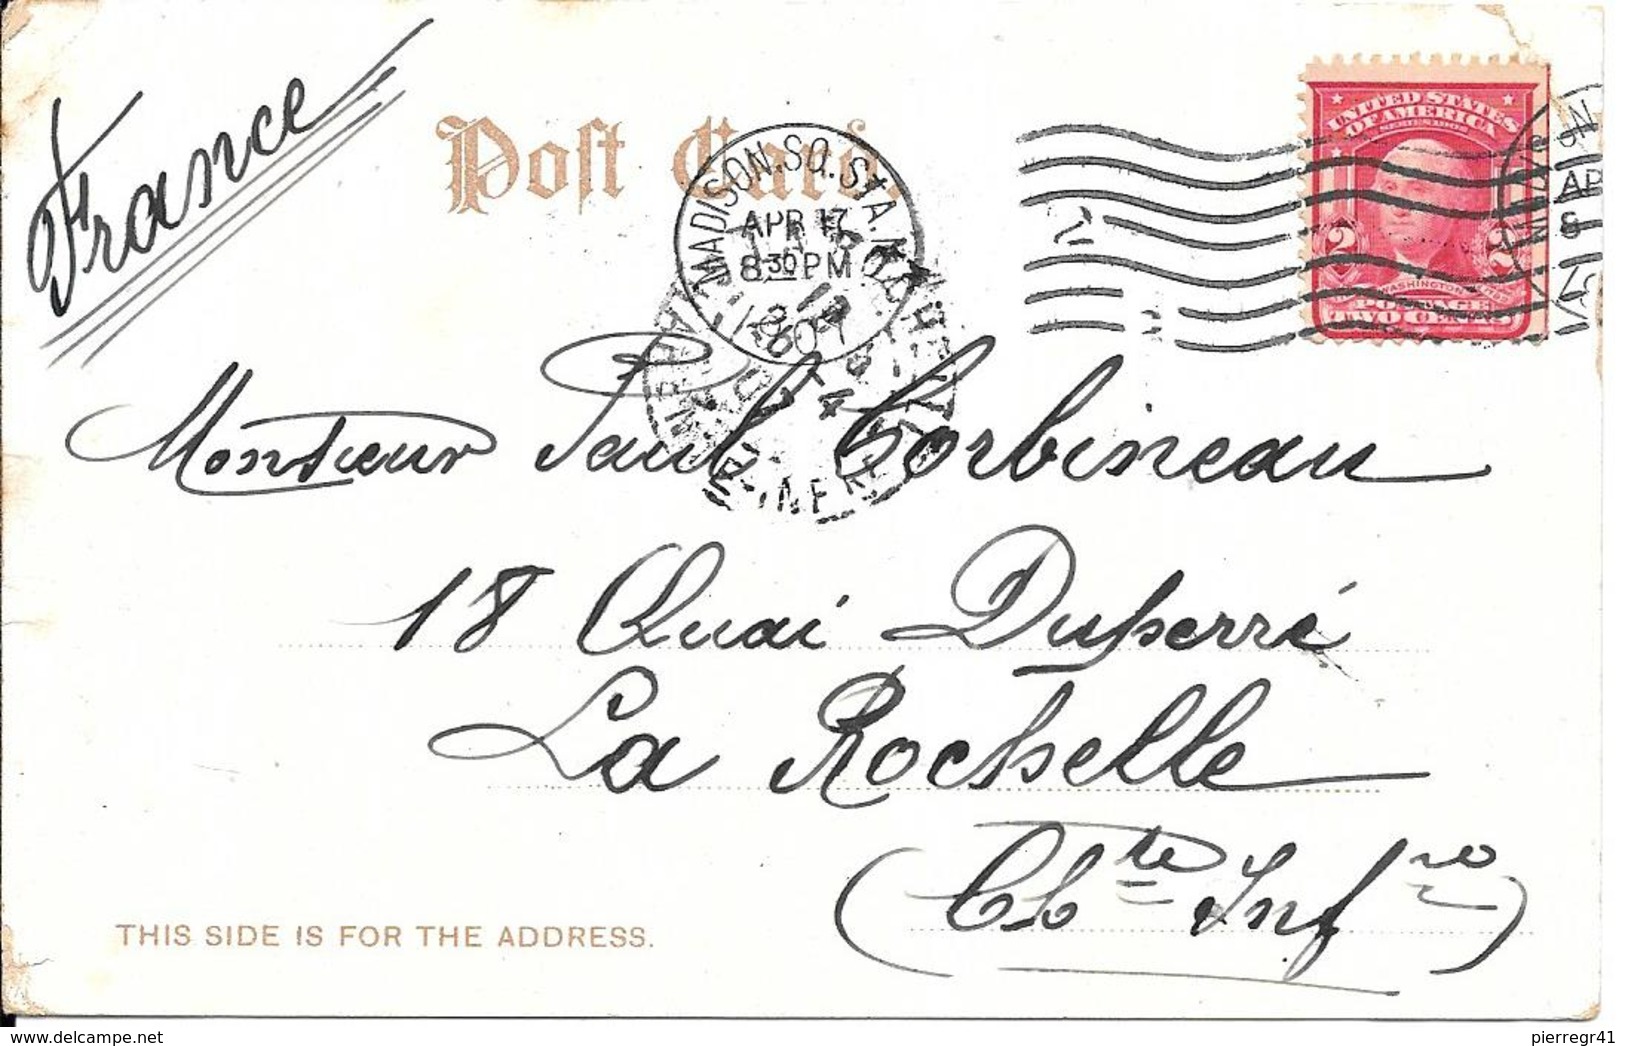 France
Post Card
MADISON. SQ. STA. N.Y.
APR 17
8 30 PM
1907
UNITED STATES
OF AMERICA
SERIES 1902
2 2
WASHINGTON
TWO CENTS
AP
8
Monsieur Paul Corbineau
18 Quai Duperré
La Rochelle
(Chte Infre)
THIS SIDE IS FOR THE ADDRESS.
pierregr41